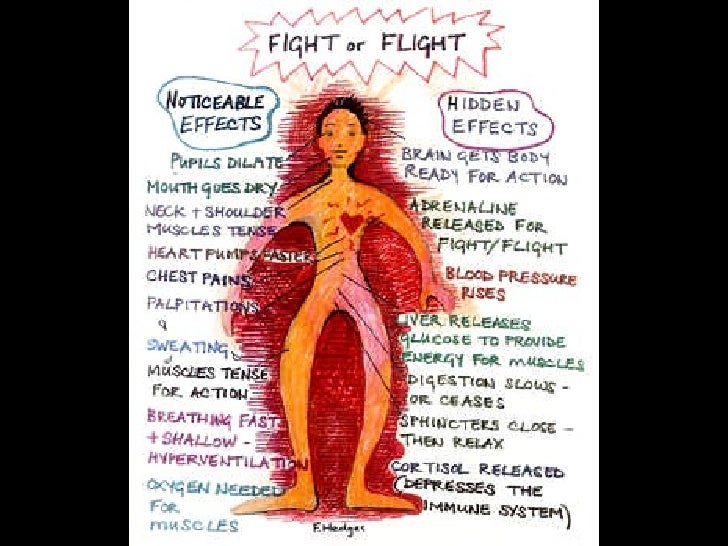 FIGHT or FLIGHT
NOTICEABLE
EFFECTS
PUPILS DILATE
MOUTH GOES DRY
NECK + SHOULDER
MUSCLES TENSE
HEART PUMPS FASTER
CHEST PAINS
PALPITATIONS
&
SWEATING
MUSCLES TENSE
FOR ACTION
BREATHING FAST
+ SHALLOW -
HYPERVENTILATION
OXYGEN NEEDED
FOR
MUSCLES
HIDDEN
EFFECTS
BRAIN GETS BODY
READY FOR ACTION
ADRENALINE
RELEASED FOR
FIGHT/FLIGHT
BLOOD PRESSURE
RISES
LIVER RELEASES
GLUCOSE TO PROVIDE
ENERGY FOR MUSCLES
DIGESTION SLOWS -
OR CEASES
SPHINCTERS CLOSE -
THEN RELAX
CORTISOL RELEASED
(DEPRESSES THE
IMMUNE SYSTEM)
F. Hedger